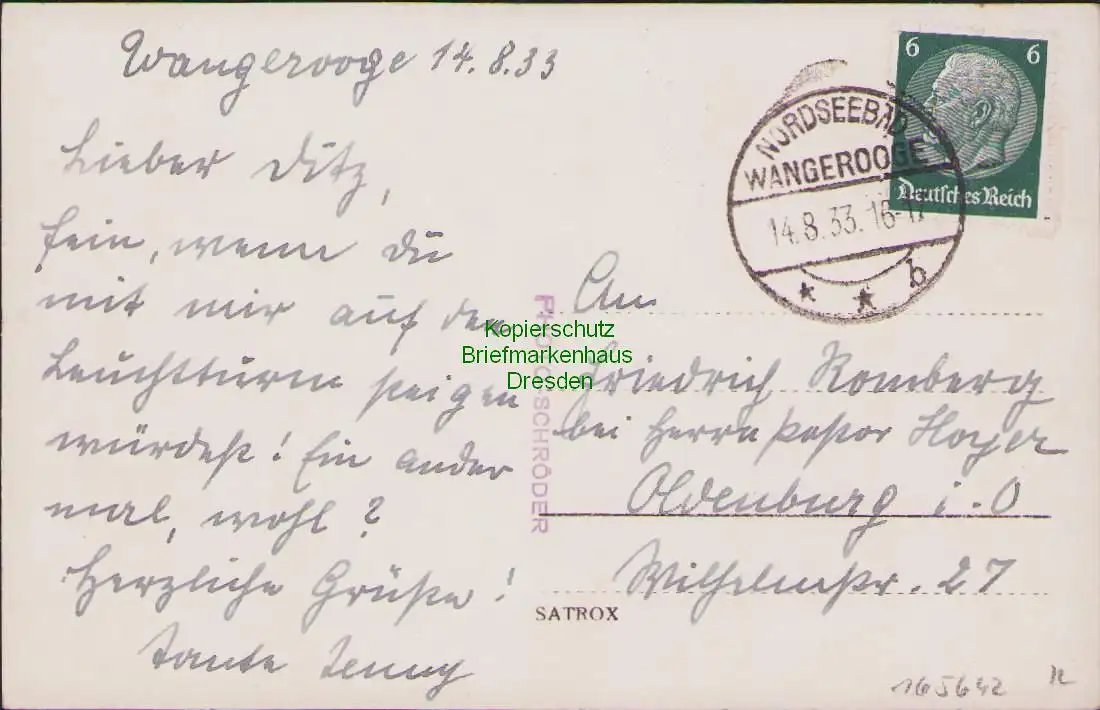 Wangerooge 14.8.33
Lieber Ditz,
fein, wenn du
mit mir auf den
Leuchtturm steigen
würdest! Ein ander
mal, wohl?
Herzliche Grüße!
Tante Jenny
6 6
Deutsches Reich
NORDSEEBAD
WANGEROOGE
14.8.33.16-17
* * b
An
Friedrich Romberg
bei Herrn Pastor Hoyer
Oldenburg i. O
Wilhelmstr. 27
SCHRÖDER
SATROX
Kopierschutz
Briefmarkenhaus
Dresden
165642